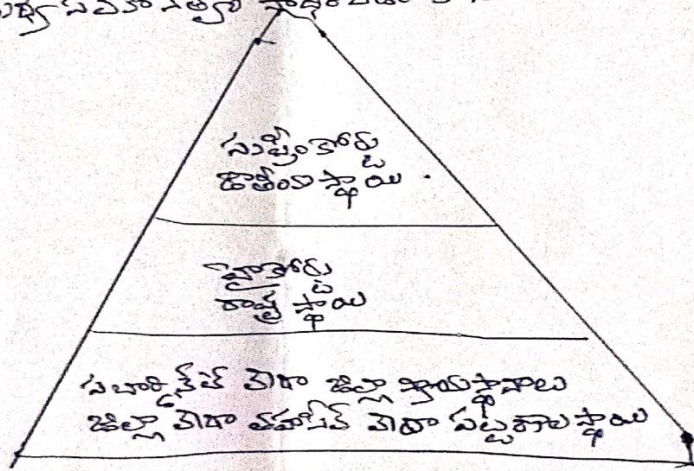 సుప్రీం కోర్టు
జాతీయ స్థాయి
హైకోర్టు
రాష్ట్ర స్థాయి
సబార్డినేట్ లేదా జిల్లా న్యాయస్థానాలు
జిల్లా లేదా తహసీల్ లేదా పట్టణాల స్థాయి